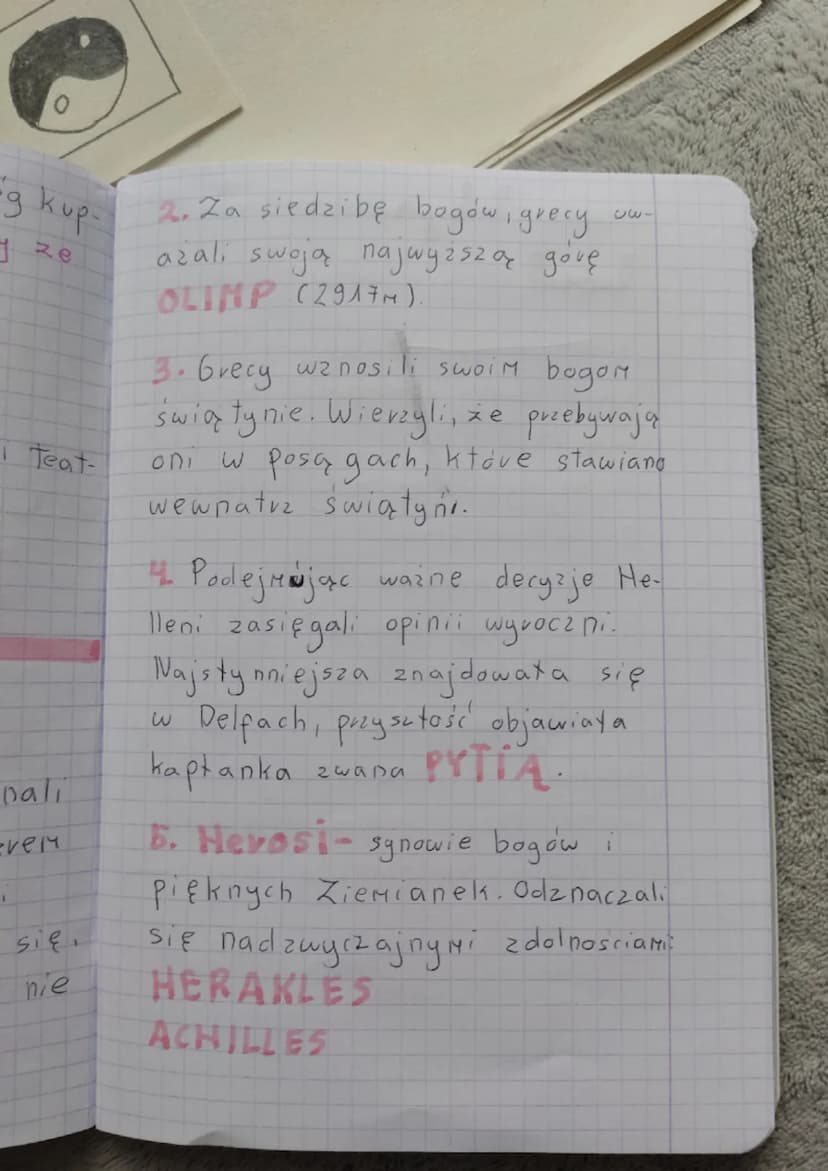 g kup-
ze
i Teat-
nali
się.
nie
2. Za siedzibę bogów, grecy uw-
ażali swoją najwyższą górę
OLIMP (2917m).
3. Grecy wznosili swoim bogom
świątynie. Wierzyli, że przebywają
oni w posągach, które stawiano
wewnatrz świątyni.
4. Podejmując ważne decyzje He-
lleni zasięgali opinii wyroczni.
Najsłynniejsza znajdowała się
w Delfach, przyszłość objawiała
kapłanka zwana PYTIĄ.
5. Herosi- synowie bogów i
pięknych Ziemianek. Odznaczali
się nadzwyczajnymi zdolnosciami:
HERAKLES
ACHILLES